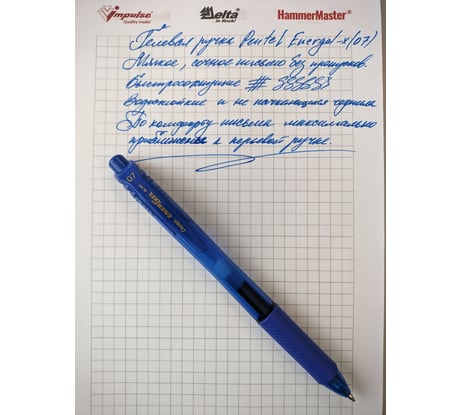 impulse Delta HammerMaster®
Quality made! in Rock!
Гелевая ручка Pentel Energel-x(07)
Мягкое, сочное письмо без пропусков.
Быстросохнущие #
Водостойкие и не пачкающие чернила
По комфорту письма максимально
приближена к перьевой ручке.
07
Pentel ENERGEL